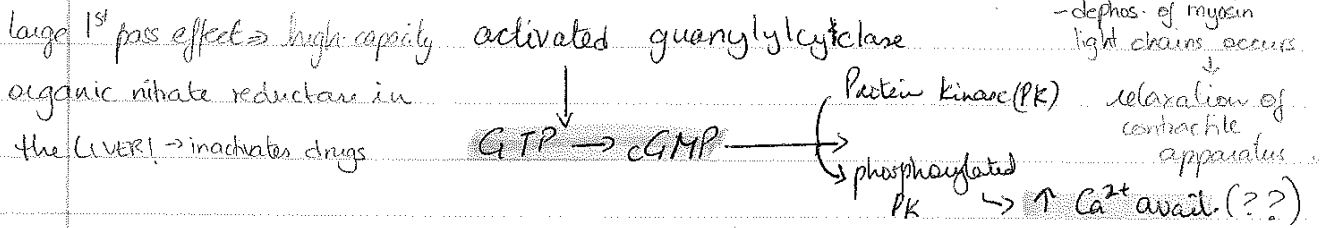 large 1st pass effect ⇒ high-capacity
organic nitrate reductase in
the LIVER! → inactivates drugs
activated guanylylcyclase
GTP → cGMP
Protein kinase (PK)
phosphorylated
PK
↑ Ca2+ avail. (??)
- dephos. of myosin
light chains occurs
↓
relaxation of
contractile
apparatus.